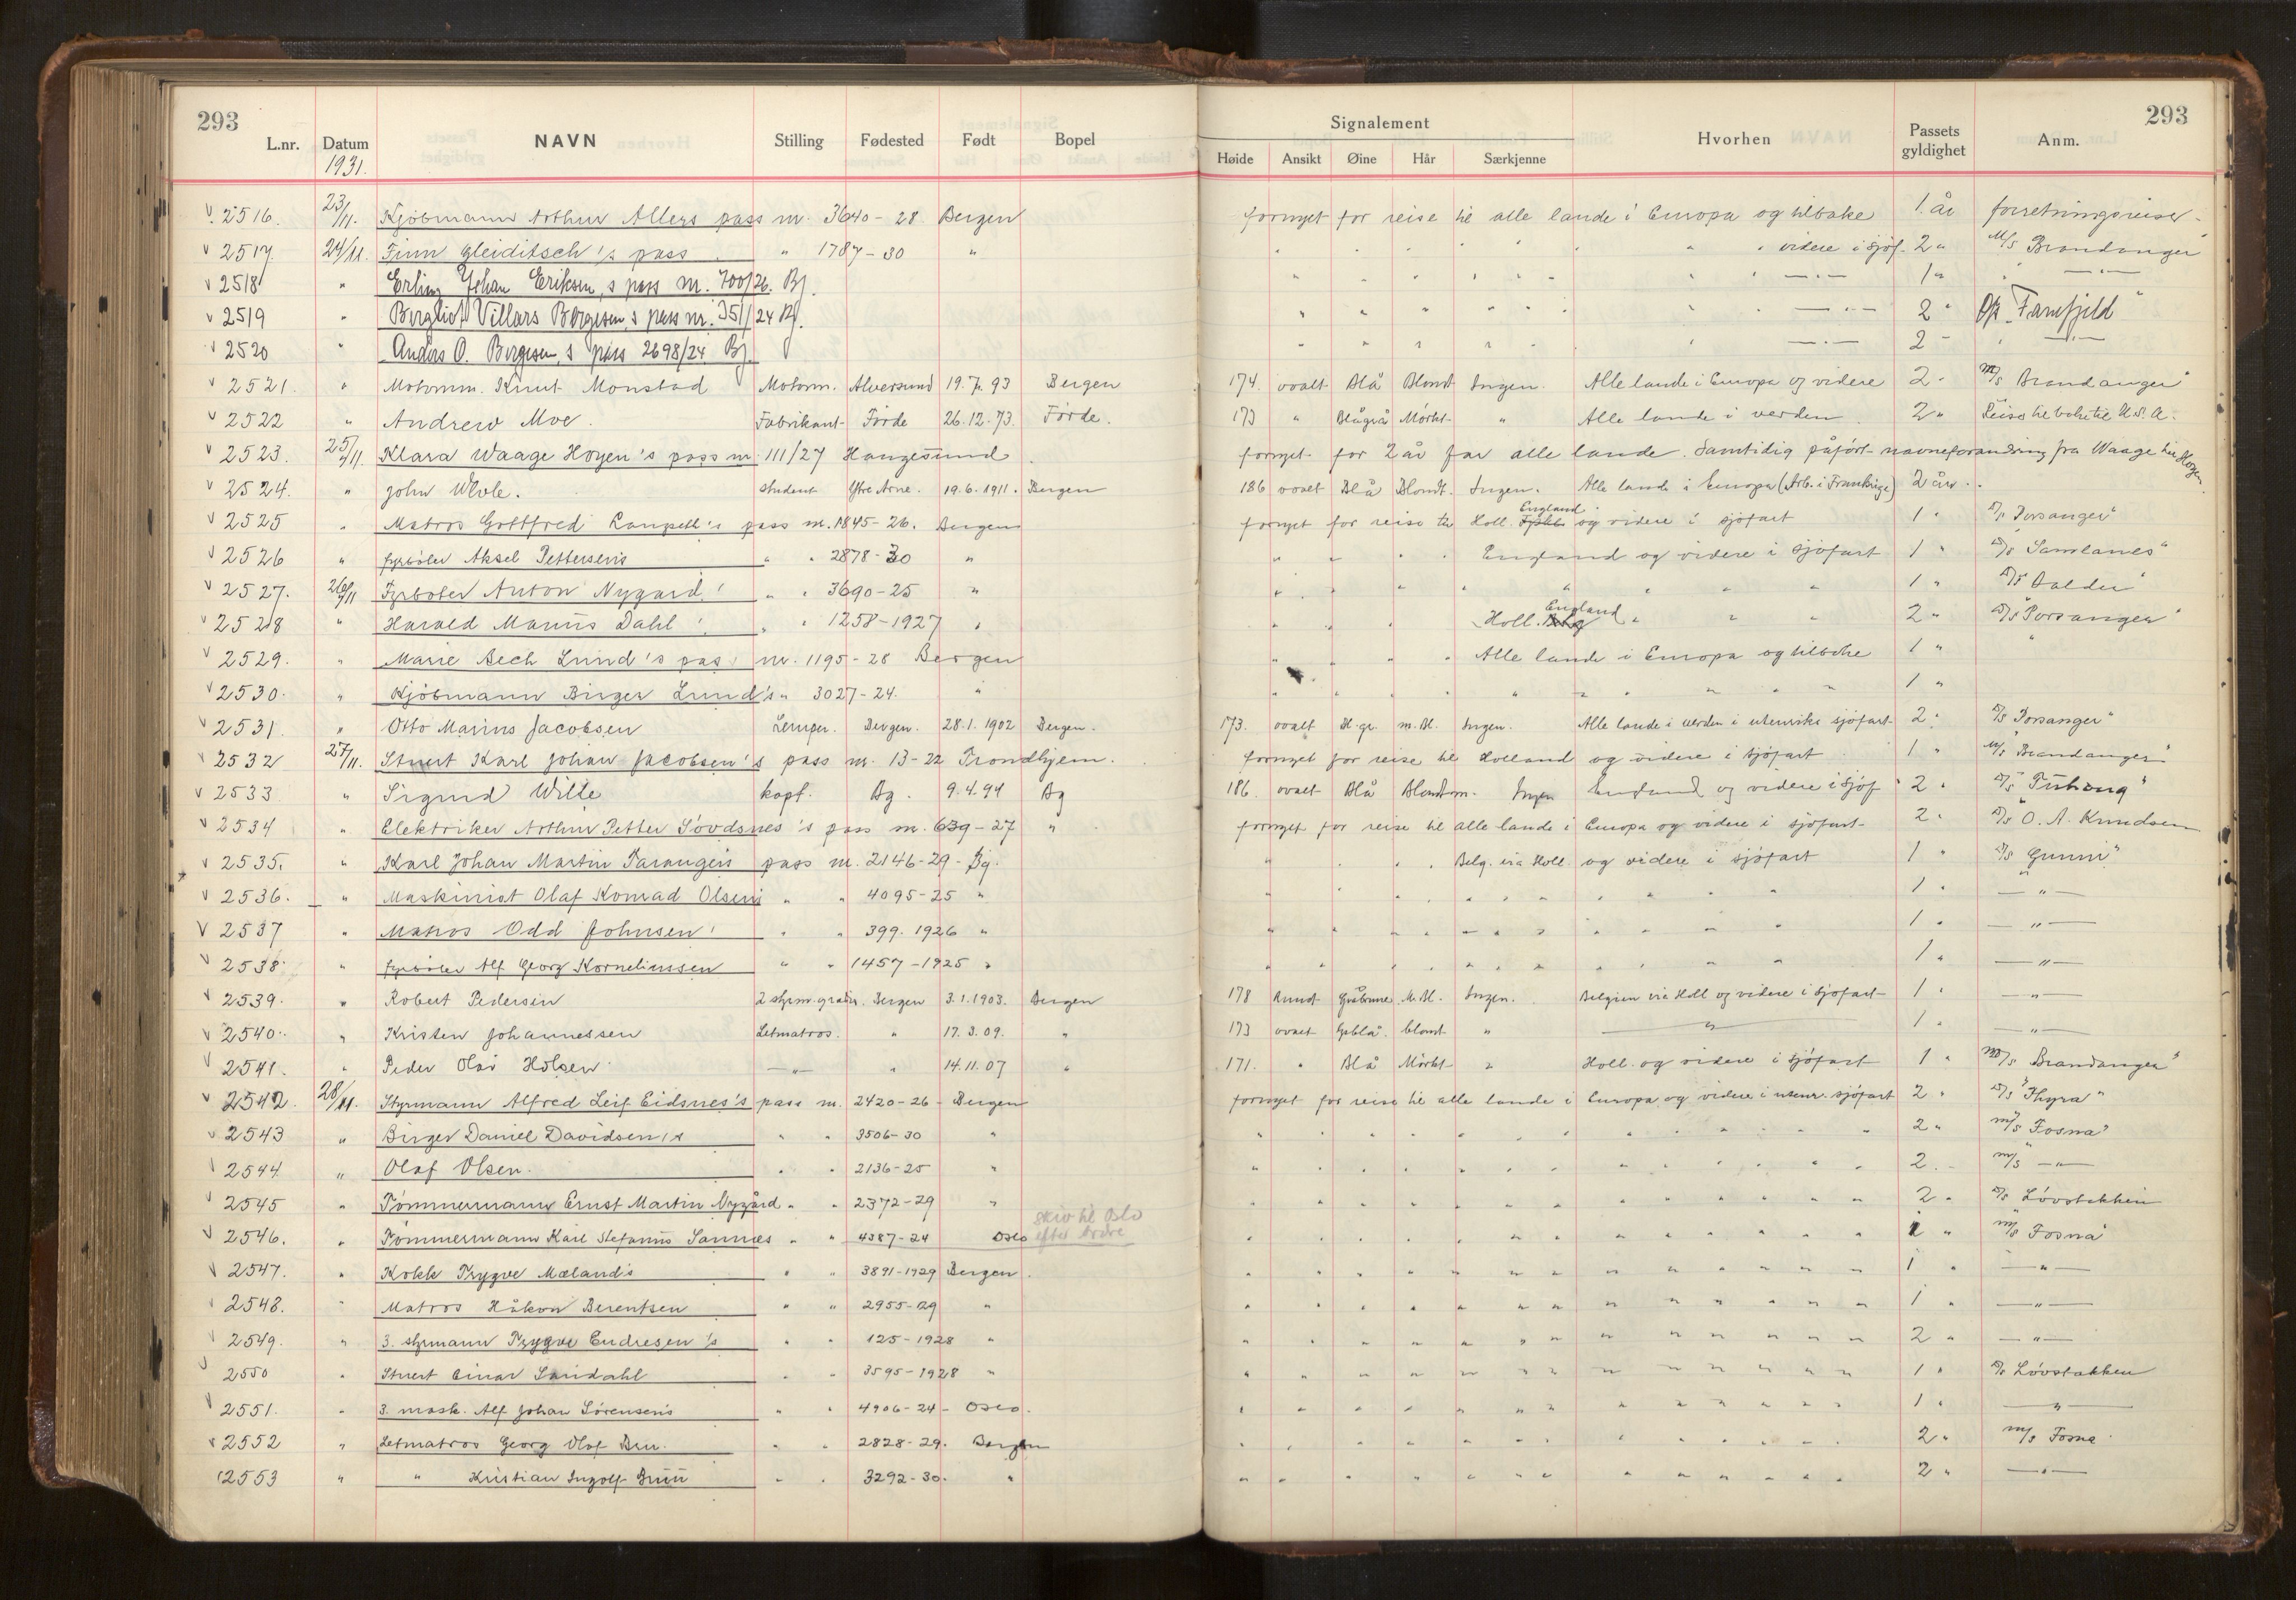 293
293
L.nr. Datum NAVN Stilling Fødested Født Bopel
Signalement
Høide Ansikt Øine Hår Særkjenne Hvorhen Passets gyldighet Anm.
1931.
2516. 23/11. Kjøbmann Arthur Allers pass nr. 3640-28 Bergen fornyet for reise til alle lande i Europa og tilbake 1 år forretningsreiser
2517. 24/11. Finn Gleiditsch's pass " 1787-30 " " " videre i sjøf. 2 " M/S Brandanger
2518 " Erling Johan Eriksen,s pass nr. 700/26. Bg. " 1 "
2519 " Villars Børgesen,s pass nr. 351/24 Bg. " 2 " "Fanefjeld"
2520 " Anders O. Børgesen,s pass 2698/24 Bg. " 2 "
2521. " Motorm. Knut Monstad Motorm. Alversund 19.7.93 Bergen 174. ovalt Blå Blond Ingen. Alle lande i Europa og videre 2 " M/S Brandanger"
2522 " Andrew Moe. Fabrikant Førde 26.12.73. Førde. 173 " Blågrå Mørkt " Alle lande i verden 2 " Reise tilbake til U.S.A.
2523. 25/11. Klara Waage Høyen's pass nr. 111/27 Haugesund fornyet for 2 år for alle lande. Samtidig påført navneforandring fra Waage til Høyen.
2524. " John student Ytre Arne. 19.6.1911. Bergen 186 ovalt Blå Blondt. Ingen. Alle lande i Europa (Arb. i Frankrige) 2 år.
2525 " Matros Gottfred pass nr. 1845-26. Bergen fornyet for reise til Holl. England og videre i sjøfart 1 " D/S Porsanger"
2526 " Fyrbøter Aksel Pettersens " " 2878-30 " " England og videre i sjøfart 1 " D/S Samlanes"
2527. 26/11 Fyrbøter Anton Nygard's " " 3690-25 " " 1 "
2528 " Harald Marius Dahl's " " 1258-1927 " Holl. England " 2 " D/S Porsanger"
2529. " Marie Bech Lund's pass nr. 1195-28 Bergen " Alle lande i Europa og tilbake 1 " "
2530. " Kjøbmann Birger Lund's " 3027-24. " " 1 "
2531. " Otto Marius Jacobsen Bergen. 28.1.1902 Bergen. 173. ovalt Bl.gr. m.Bl. Ingen. Alle lande i verden i utenriks sjøfart 2 " D/S Porsanger"
2532 27/11. Stuert Karl Johan Jacobsen's pass nr. 13-22 Trondhjem. fornyet for reise til Holland og videre i sjøfart 1 " M/S Brandanger"
2533 " Sigurd Wille kapt. Bg. 9.4.94 Bg 186. ovalt Blå Blond Ingen England og videre i sjøf 2 "
2534 " Elektriker Arthur Petter Søvdsnes's pass nr. 639-27 " fornyet for reise til alle lande i Europa og videre i sjøfart 2 " D/S O. A. Knudsen
2535. " Karl Johan Martin pass nr. 2146-29- Bg. " Belg. via Holl. og videre i sjøfart 1 " D/S Gunni"
2536. " Maskinist Olaf Konrad Olsens " " 4095-25 " " 1 " "
2537 " Matros Odd Johnsen's " " 399.1926 " " 1 " "
2538. " Fyrbøter Alf Georg Korneliussen " " 1457-1925 " " 1 " "
2539. " Robert Pedersen 2 styrm. Bergen 3.1.1903. Bergen 178 Rund Gråbrune M.Bl. Ingen. Belgien via Holl og videre i sjøfart 1 " "
2540. " Kristen Johannessen Letmatros. " 17.3.09. " 173 ovalt blond " " 1 " "
2541. " Peder Olai Holsen " " 14.11.07 " 171. " Blå Mørkt " Holl. og videre i sjøfart 1 " M/S Brandanger"
2542. 28/11. Styrmann Alfred Leif Eidsnes's pass nr. 2420-26- Bergen fornyet for reise til alle lande i Europa og videre i utenr. sjøfart 2 " D/S "Thyra"
2543 " Birger Daniel Davidsen's " " 3506-30 " " 2 " M/S Fosna"
2544 " Olaf Olsen. " " 2136-25 " " 2 " M/S "
2545 " Tømmermann Ernst Martin Nygård " " 2372-29 " " 2 " D/S Løvstakken
skriv til Oslo
efter ordre
2546. " Tømmermann Karl Stefanus Sannes " " 4387-24 Oslo " 1 " M/S Fosna"
2547. " Kokk Trygve Mælands " " 3891-1929 Bergen. " 1 " "
2548. " Matros Håkon Berentsen " " 2955-29 " " 1 " "
2549. " 3. styrmann Trygve Endresen's " " 125-1928 " " 2 " "
2550 " Stuert Einar Sandahl " " 3595-1928 " " 1 " D/S Løvstakken
2551. " 3. mask. Alf Johan Sørensens " " 4906-24- Oslo. " 1 " "
2552 " Letmatros Georg Olaf " " 2828-29. Bergen " 2 " M/S Fosna
2553 " " Kristian Ingolf " " 3292-30. " " 2 " "